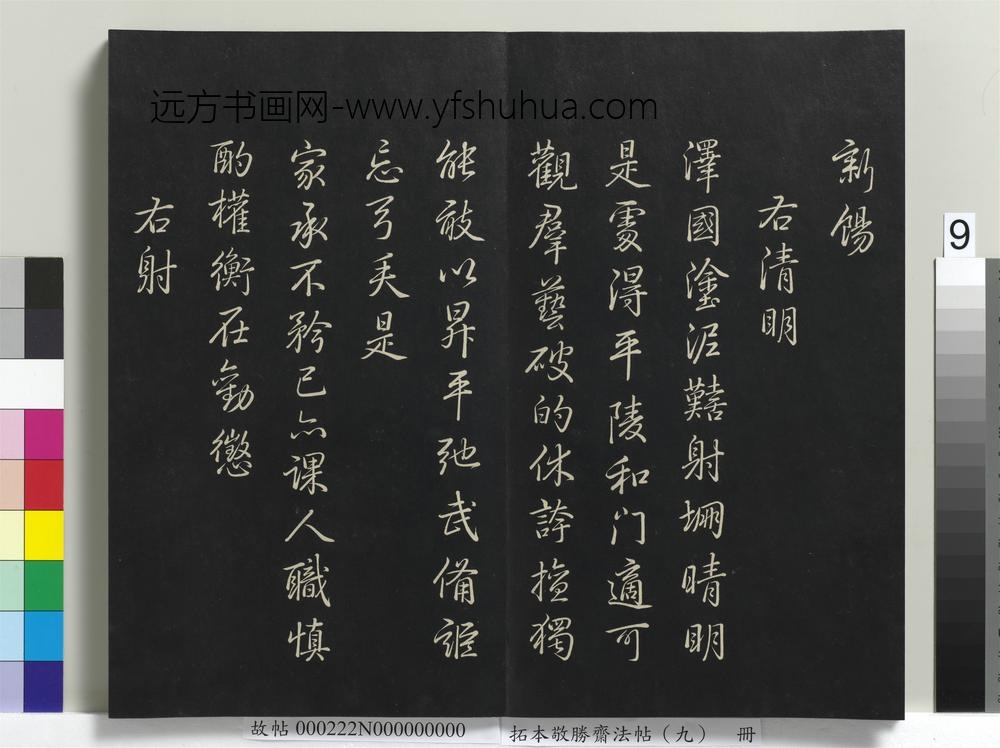 远方书画网-www.yfshuhua.com
新餳
右清明
澤國塗泥艱射堋晴明
是處得平陵和门適可
觀羣藝破的休誇擅獨
能敢以昇平弛武備詎
忘弓矢是
家承不矜已亦課人職慎
酌權衡在勸懲
右射
9
故帖 000222N000000000
拓本敬勝齋法帖（九） 冊